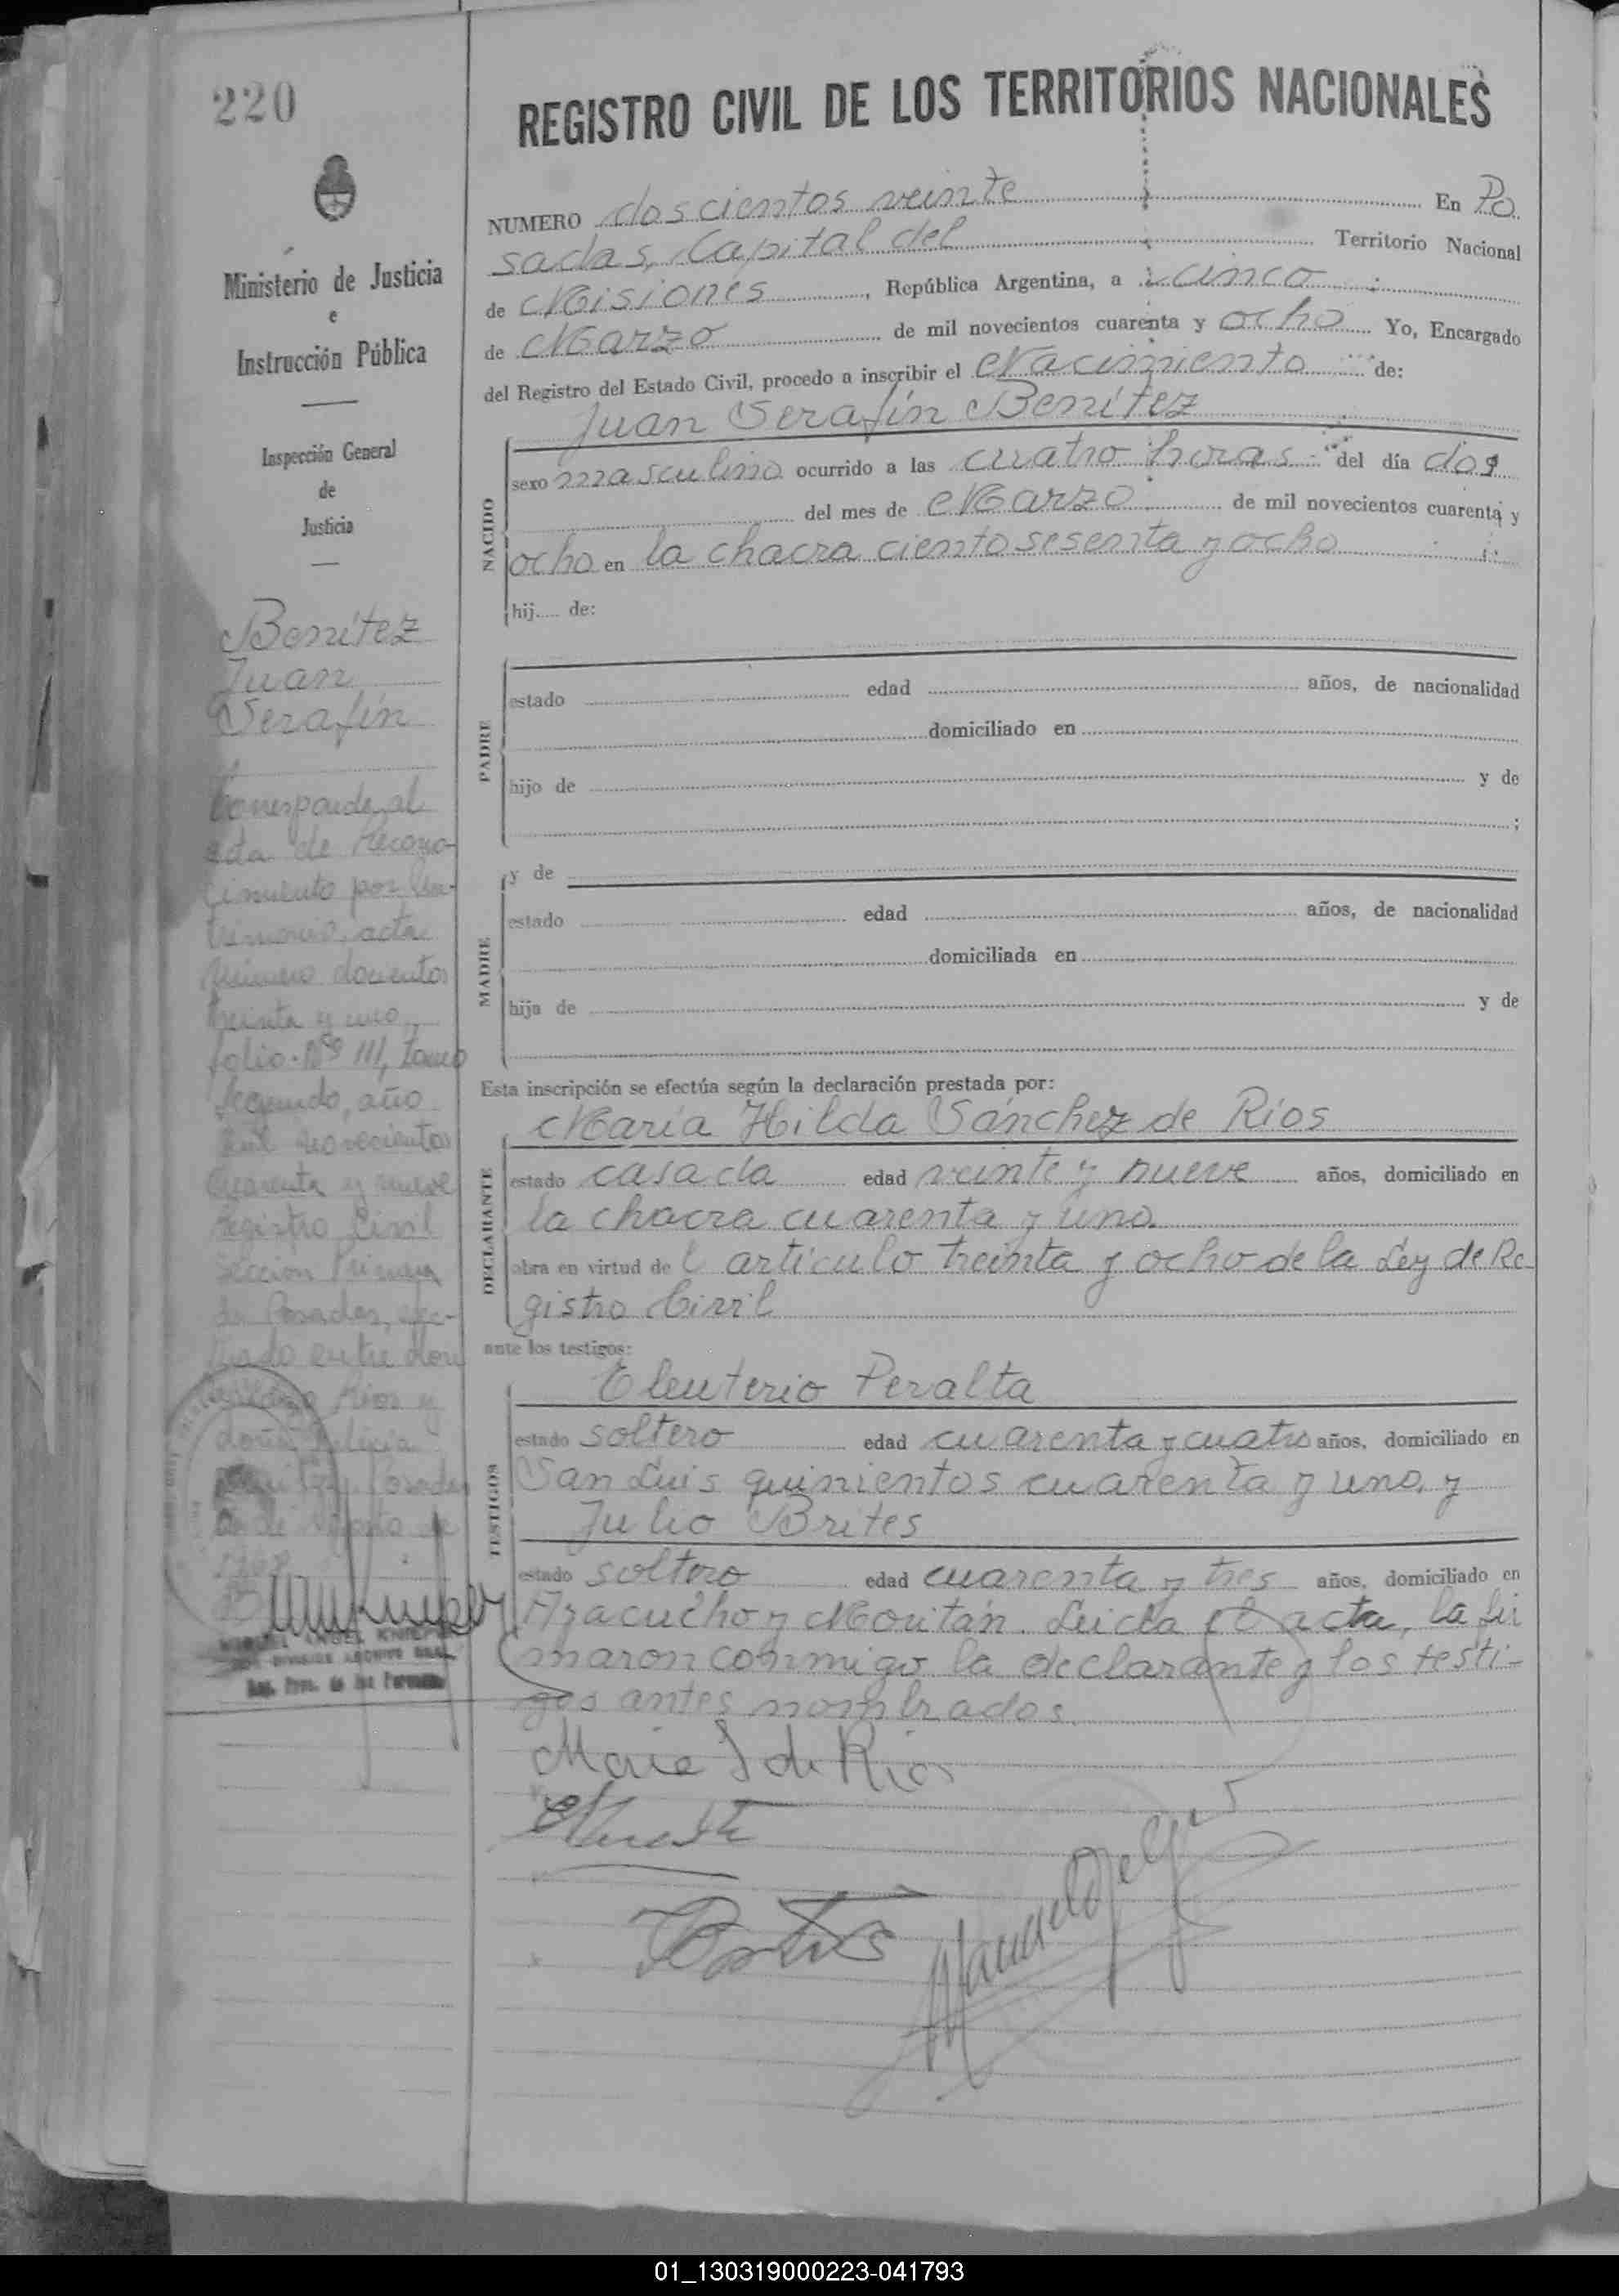 220
REGISTRO CIVIL DE LOS TERRITORIOS NACIONALES
Ministerio de Justicia
e
Instrucción Pública
Inspección General
de
Justicia
Benítez
Juan
Serafín
Corresponde al
acta de Recono-
cimiento por
acta
número doscientos
treinta y uno
folio Nº 111, tomo
segundo, año
mil novecientos
cuarenta y nueve
Registro Civil
Sección Primera
de Posadas, efec-
tuado entre don
Ríos y
doña
Posadas
de Agosto de
MANUEL ANGEL
DIVISION ARCHIVO GRAL.
Reg. Prov. de las Personas
NUMERO doscientos veinte En Po
sadas, Capital del Territorio Nacional
de Misiones, República Argentina, a cinco
de Marzo de mil novecientos cuarenta y ocho Yo, Encargado
del Registro del Estado Civil, procedo a inscribir el Nacimiento de:
Juan Serafín Benítez
NACIDO
sexo masculino ocurrido a las cuatro horas del día dos
del mes de Marzo de mil novecientos cuarenta y
ocho en la chacra ciento sesenta y ocho
hij de:
PADRE
estado edad años, de nacionalidad
domiciliado en
hijo de y de
;
y de
MADRE
estado edad años, de nacionalidad
domiciliada en
hija de y de
Esta inscripción se efectúa según la declaración prestada por:
María Hilda Sánchez de Ríos
DECLARANTE
estado casada edad veinte y nueve años, domiciliado en
la chacra cuarenta y uno.
obra en virtud de l artículo treinta y ocho de la Ley de Re-
gistro Civil
ante los testigos:
Eleuterio Peralta
TESTIGOS
estado soltero edad cuarenta y cuatro años, domiciliado en
San Luis quinientos cuarenta y uno, y
Julio Brites
estado soltero edad cuarenta y tres años, domiciliado en
Ayacucho y Moritán. Leída el acta, la fir
maron conmigo la declarante y los testi-
gos antes nombrados.
Maria S de Rios
Brites
01_130319000223-041793